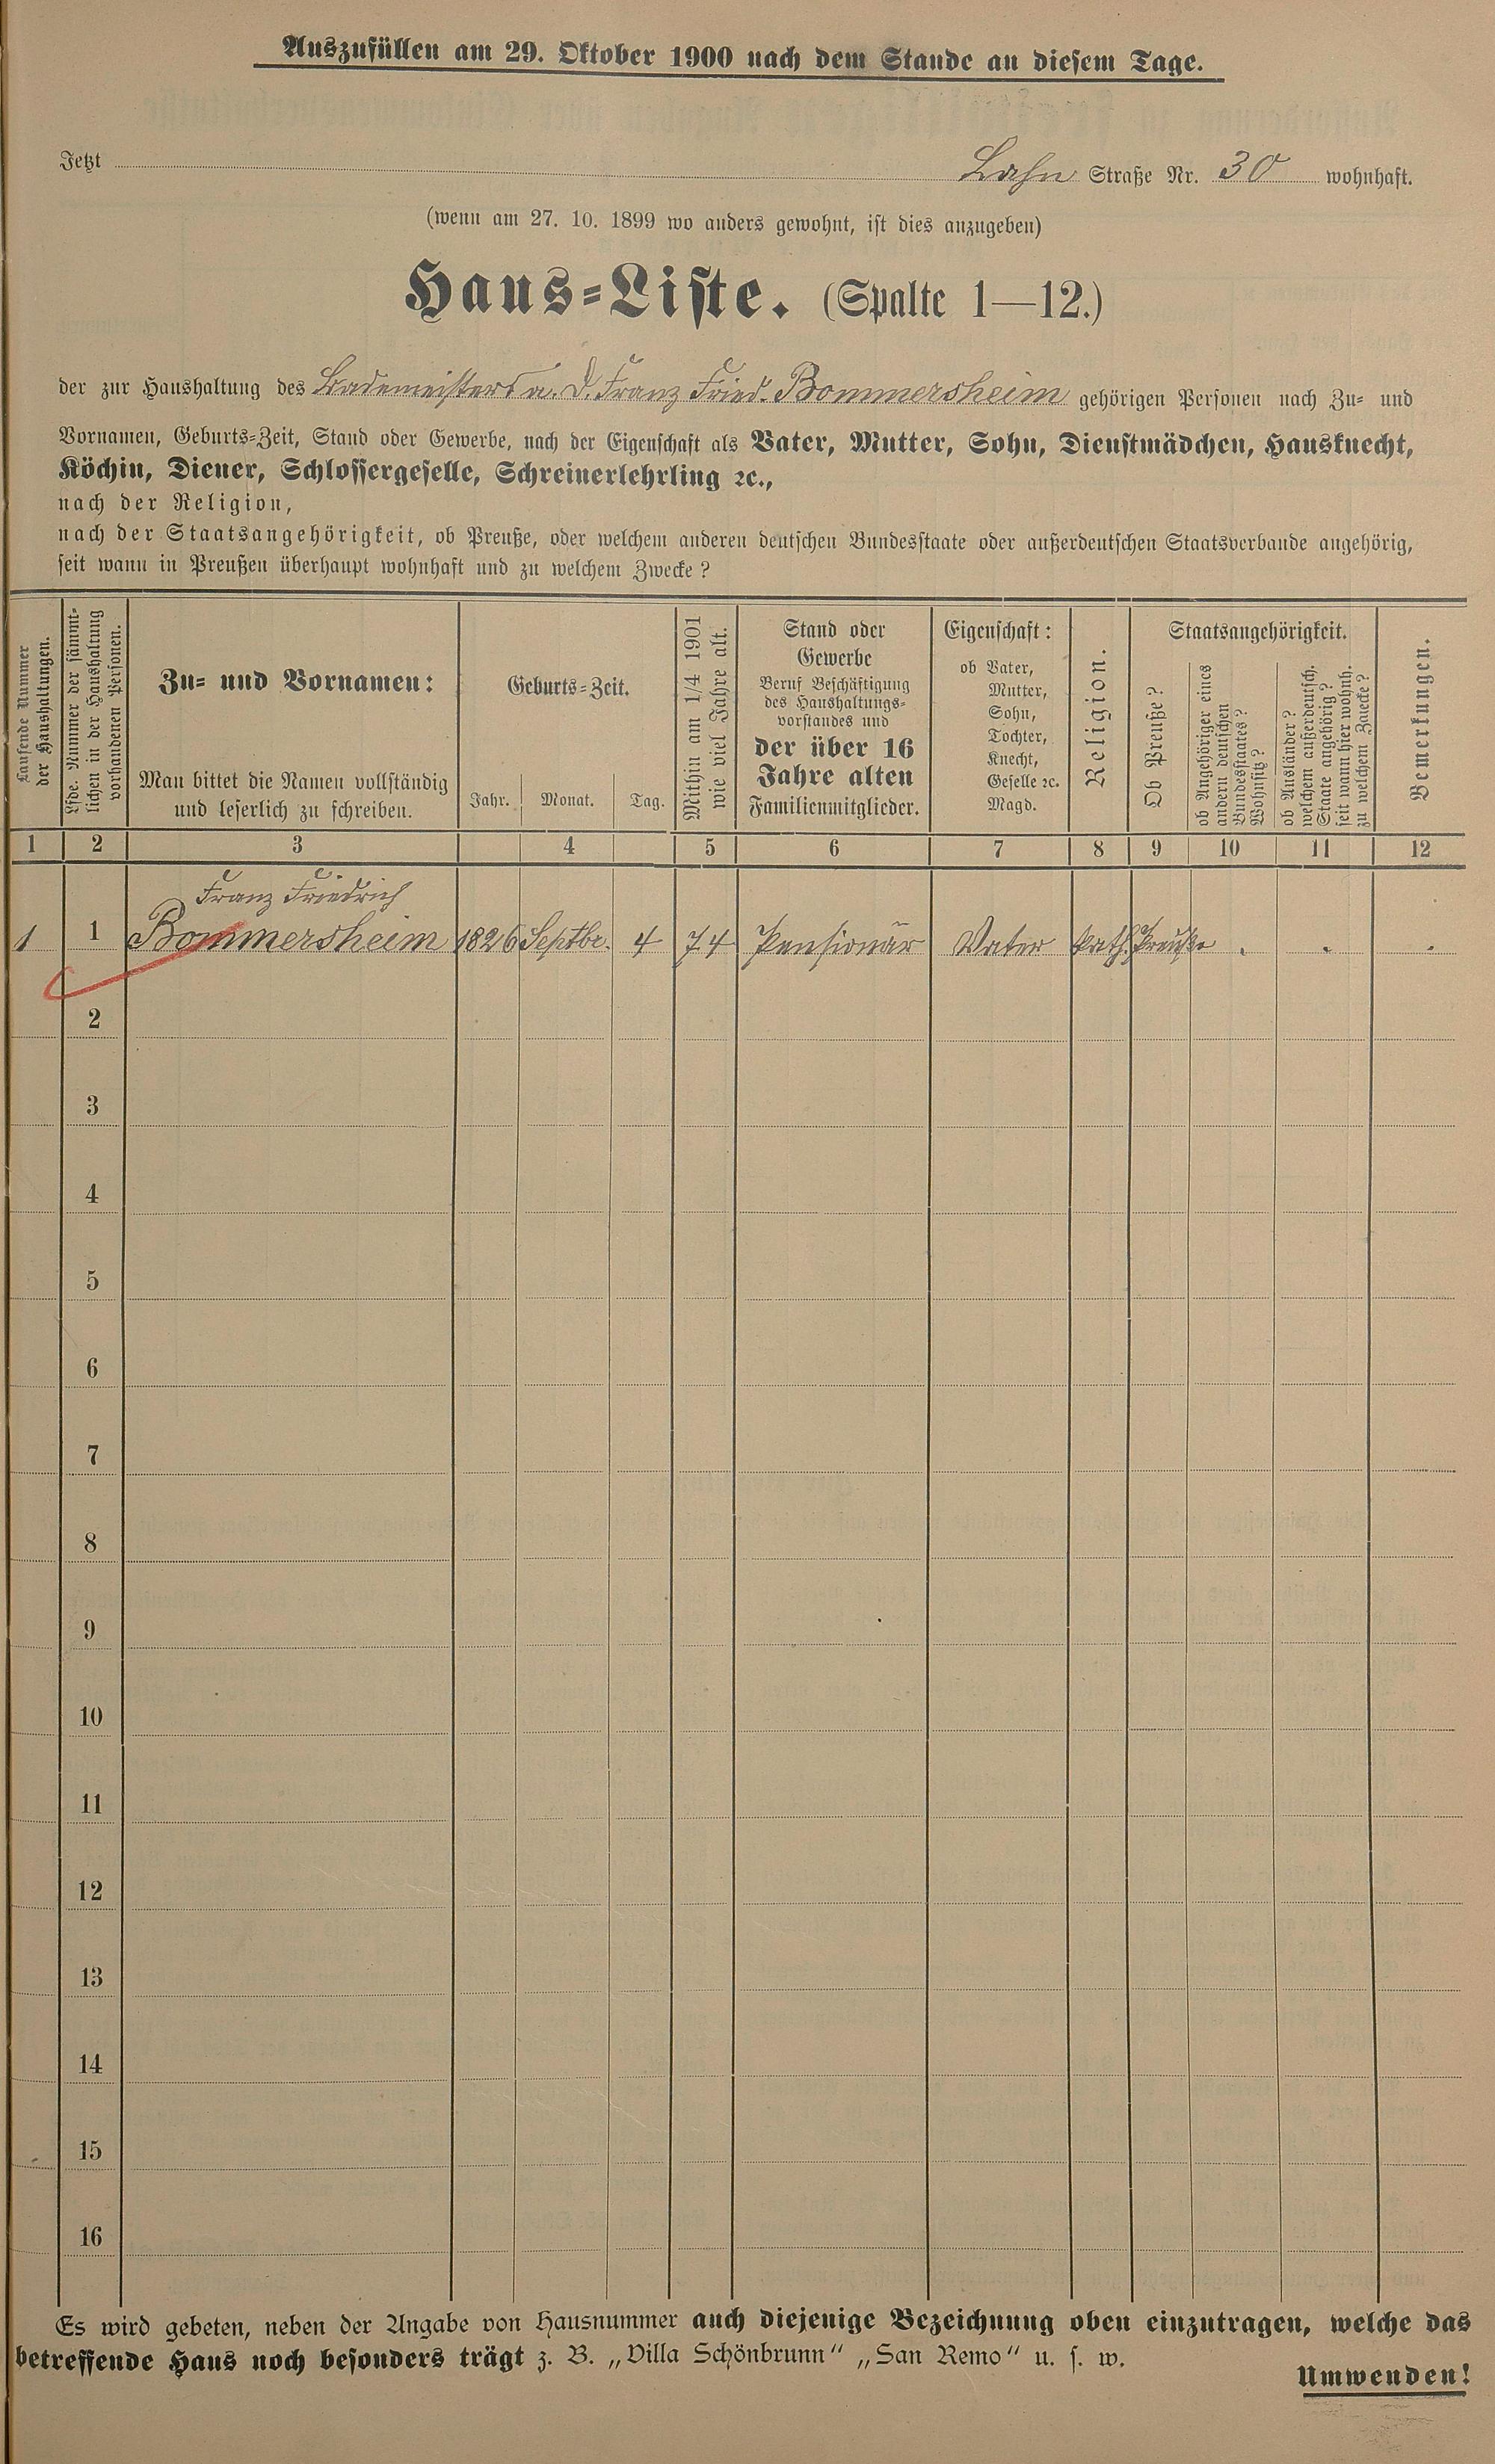 Auszufüllen am 29. Oktober 1900 nach dem Stande an diesem Tage.
Jetzt Lahn Straße Nr. 30 wohnhaft.
(wenn am 27. 10. 1899 wo anders gewohnt, ist dies anzugeben)
Haus-Liste. (Spalte 1—12.)
der zur Haushaltung des Lademeisters a. D. Franz Fried. Bommersheim gehörigen Personen nach Zu- und
Vornamen, Geburts-Zeit, Stand oder Gewerbe, nach der Eigenschaft als Vater, Mutter, Sohn, Dienstmädchen, Hausknecht,
Köchin, Diener, Schlossergeselle, Schreinerlehrling ꝛc.,
nach der Religion,
nach der Staatsangehörigkeit, ob Preuße, oder welchem anderen deutschen Bundesstaate oder außerdeutschen Staatsverbande angehörig,
seit wann in Preußen überhaupt wohnhaft und zu welchem Zwecke?
Laufende Nummer
der Haushaltungen.
Lfde. Nummer der sämmt-
lichen in der Haushaltung
vorhandenen Personen.
Zu- und Vornamen:
Man bittet die Namen vollständig
und leserlich zu schreiben.
Geburts-Zeit.
Jahr. Monat. Tag.
Mithin am 1/4 1901
wie viel Jahre alt.
Stand oder
Gewerbe
Beruf Beschäftigung
des Haushaltungs-
vorstandes und
der über 16
Jahre alten
Familienmitglieder.
Eigenschaft:
ob Vater,
Mutter,
Sohn,
Tochter,
Knecht,
Geselle ꝛc.
Magd.
Religion.
Staatsangehörigkeit.
Ob Preuße?
ob Angehöriger eines
andern deutschen
Bundesstaates?
Wohnsitz?
ob Ausländer?
welchem außerdeutsch.
Staate angehörig?
seit wann hier wohnh.
zu welchem Zwecke?
Bemerkungen.
1 2 3 4 5 6 7 8 9 10 11 12
Franz Friedrich
1 1 Bommersheim 1826 Septbr. 4 74 Pensionär Vater kath. Preuße
2
3
4
5
6
7
8
9
10
11
12
13
14
15
16
Es wird gebeten, neben der Angabe von Hausnummer auch diejenige Bezeichnung oben einzutragen, welche das
betreffende Haus noch besonders trägt z. B. „Villa Schönbrunn“ „San Remo“ u. s. w.
Umwenden!